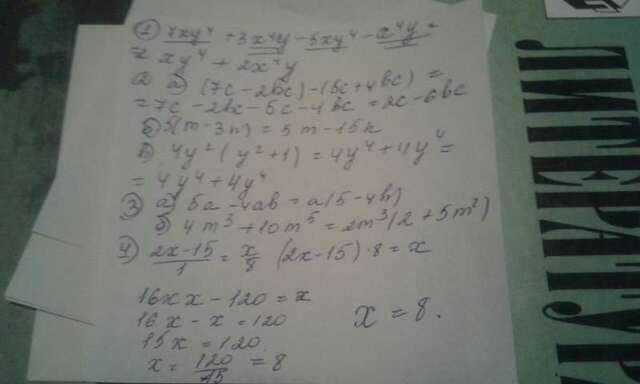 1) 7xy⁴ + 3x⁴y - 5xy⁴ - x⁴y =
= xy⁴ + 2x⁴y
2) а) (7c - 2bc) - (5c + 4bc) =
= 7c - 2bc - 5c - 4bc = 2c - 6bc
б) 5(m - 3n) = 5m - 15n
в) 4y²(y² + 1) = 4y⁴ + 4y⁴ =
= 4y⁴ + 4y⁴
3) а) 5a - 4ab = a(5 - 4b)
б) 4m³ + 10m⁵ = 2m³(2 + 5m²)
4) (2x-15)/1 = x/8 (2x-15)·8 = x
16x x - 120 = x
16x - x = 120
15x = 120
x = 120/15 = 8
x = 8.
ЛИТЕРАТУРА